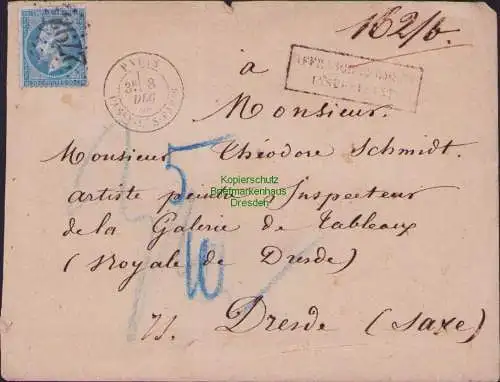 152/6
PARIS
3E 8
DEC
AFFRANCHISSEMENT
INSUFFISANT
à
Monsieur
Monsieur Théodore Schmidt.
artiste peintre, Inspecteur
de la Galerie de Tableaux
(Royale de Dresde)
Dresde (Saxe)
5
10
Kopierschutz
Briefmarkenhaus
Dresden